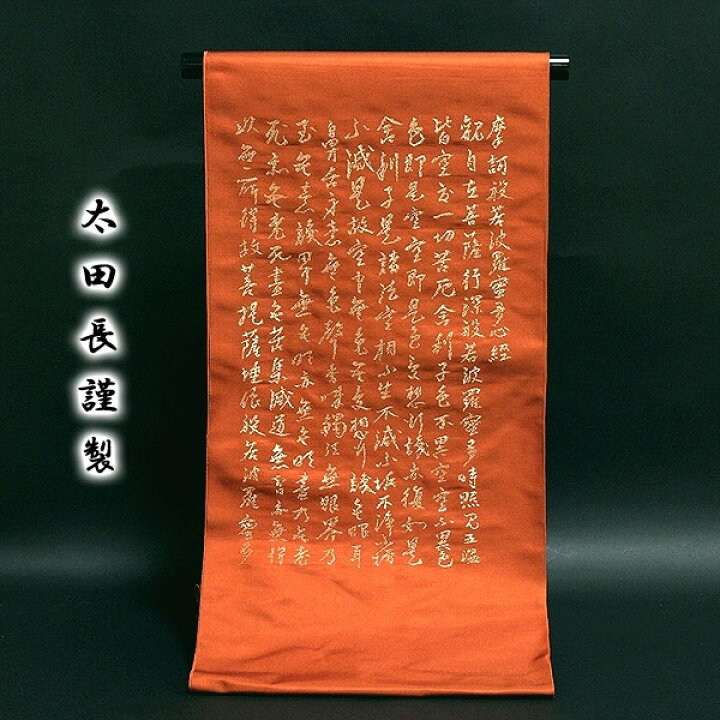 摩訶般若波羅蜜多心經
観自在菩薩行深般若波羅蜜多時照見五蘊
皆空度一切苦厄舎利子色不異空空不異色
色即是空空即是色受想行識亦復如是
舎利子是諸法空相不生不滅不垢不浄不増
不減是故空中無色無受想行識無眼耳
鼻舌身意無色聲香味觸法無眼界乃
至無意識界無無明亦無無明盡乃至無老
死亦無老死盡無苦集滅道無智亦無得
以無所得故菩提薩埵依般若波羅蜜多
太田長謹製